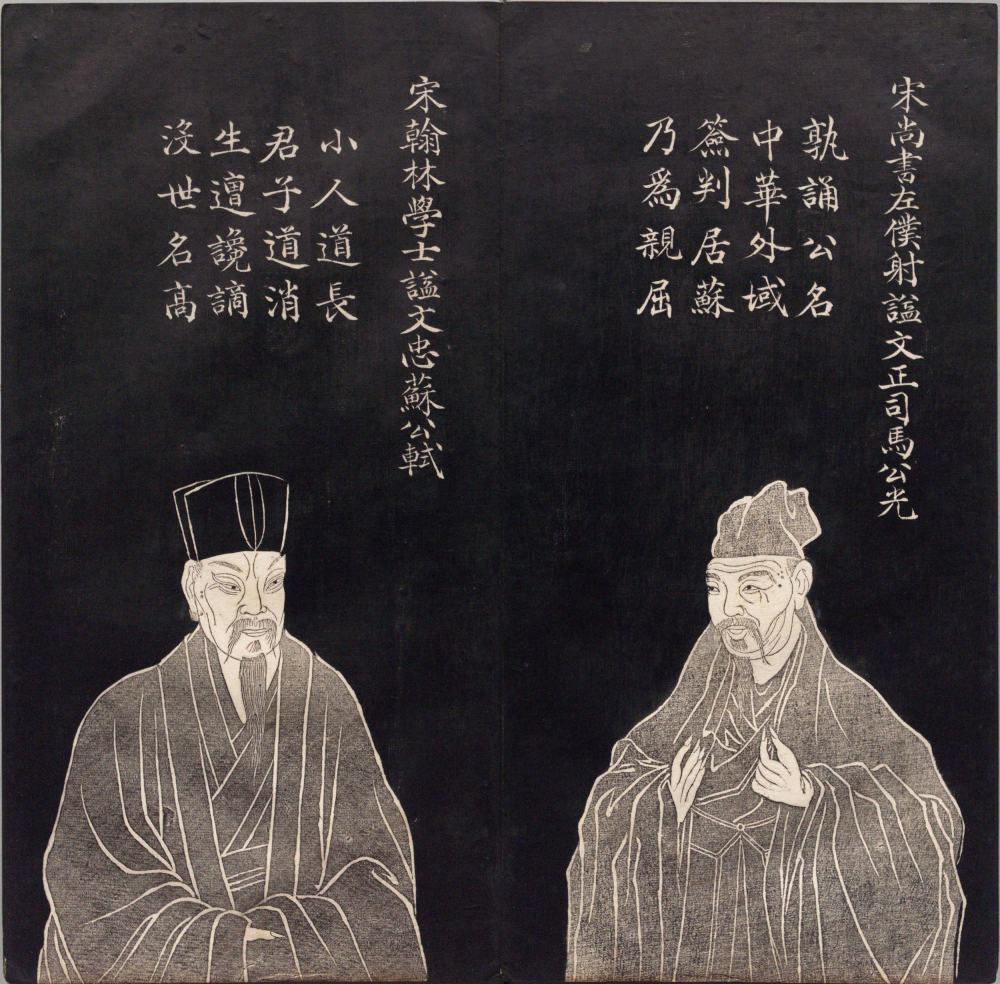 宋尚書左僕射謚文正司馬公光
孰誦公名
中華外域
簽判居蘇
乃爲親屈
宋翰林學士謚文忠蘇公軾
小人道長
君子道消
生遭讒謫
沒世名高